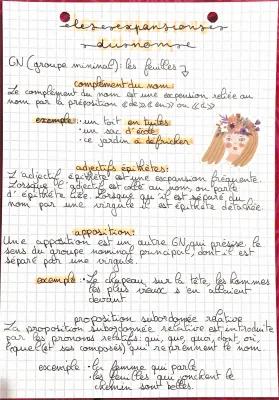 les expansions
du nom
GN (groupe mininal): les feuilles
complément du nom
Le complément du nom est une expansion reliée au
nom par la préposition «de» «en» ou «à»
exemple: • un toit en tuiles
• un sac d'école
• ce jardin à defricher
adjectifs épithètes:
L'adjectif épithète est une expansion fréquente.
Lorsque l'adjectif est collé au nom, on parle
d'épithète liée. Lorsque qu'il est séparé du
nom par une virgule il est épithète détachée.
apposition:
Une apposition est un autre GN, qui présise le
sens du groupe nominal principal, dont il est
séparé par une virgule
exemple: • Le chapeau, sur la tête, les hommes
les plus vieux s'en allaient
devant
proposition subordonée relative
La proposition subordonnée relative est introduite
par les pronoms relatifs: qui, que, quoi, dont, où,
lequel (et ses composés) qui reprennent le nom
exemple: • la femme qui parle
• les feuilles qui jonchent le
chemin sont belles.